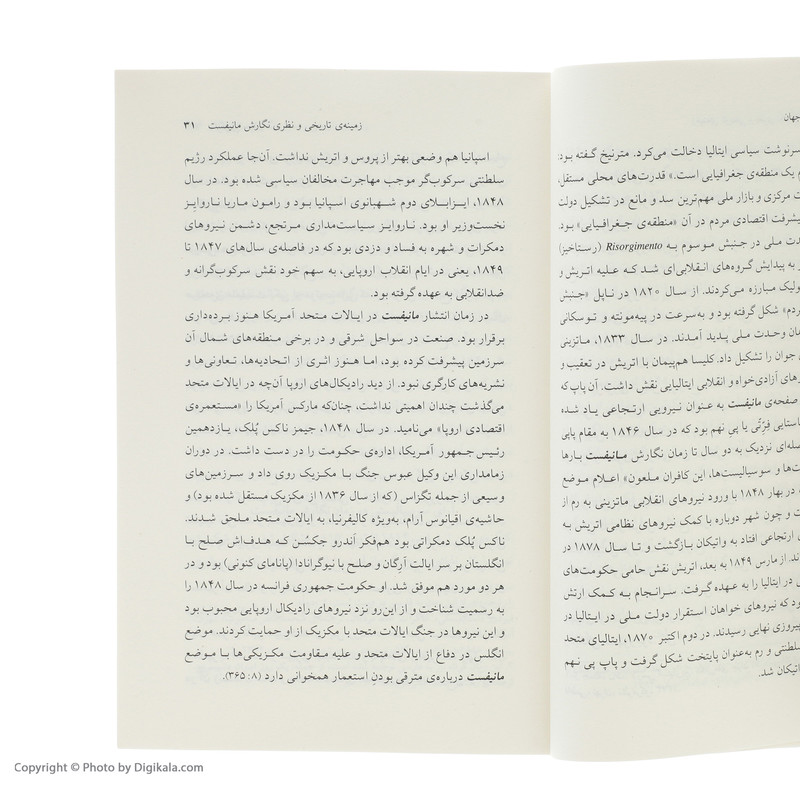 جهان
سرنوشت سیاسی ایتالیا دخالت می‌کرد. مترنیخ گفته بود:
م یک منطقه‌ی جغرافیایی است.» قدرت‌های محلی مستقل،
ت مرکزی و بازار ملی مهم‌ترین سد و مانع در تشکیل دولت
پیشرفت اقتصادی مردم در آن «منطقه‌ی جغرافیایی» بود.
دت ملی در جنبش موسوم به Risorgimento (رستاخیز)
ر به پیدایش گروه‌های انقلابی‌ای شد که علیه اتریش و
ولیک مبارزه می‌کردند. از سال ۱۸۲۰ در ناپل «جنبش
ردم» شکل گرفته بود و به‌سرعت در پیه‌مونته و توسکانی
مان وحدت ملی پدید آمدند. در سال ۱۸۳۳، ماتزینی
ی جوان را تشکیل داد. کلیسا هم‌پیمان با اتریش در تعقیب و
رهای آزادی‌خواه و انقلابی ایتالیایی نقش داشت. آن پاپ که
صفحه‌ی مانیفست به عنوان نیرویی ارتجاعی یاد شده
ماستایی فِرّتّی یا پی نهم بود که در سال ۱۸۴۶ به مقام پاپی
صله‌ای نزدیک به دو سال تا زمان نگارش مانیفست بارها
ت‌ها و سوسیالیست‌ها، این کافران ملعون» اعلام موضع
در بهار ۱۸۴۸ با ورود نیروهای انقلابی ماتزینی به رم از
ت و چون شهر دوباره با کمک نیروهای نظامی اتریش به
ی ارتجاعی افتاد به واتیکان بازگشت و تا سال ۱۸۷۸ در
ند. از مارس ۱۸۴۹ به بعد، اتریش نقش حامی حکومت‌های
ی در ایتالیا را به عهده گرفت. سرانجام به کمک ارتش
ود که نیروهای خواهان استقرار دولت ملی در ایتالیا در
پیروزی نهایی رسیدند. در دوم اکتبر ۱۸۷۰، ایتالیای متحد
سلطنتی و رم به‌عنوان پایتخت شکل گرفت و پاپ پی نهم
اتیکان شد.
زمینه‌ی تاریخی و نظری نگارش مانیفست ۳۱
اسپانیا هم وضعی بهتر از پروس و اتریش نداشت. آن‌جا عملکرد رژیم
سلطنتی سرکوب‌گر موجب مهاجرت مخالفان سیاسی شده بود. در سال
۱۸۴۸، ایزابلای دوم شهبانوی اسپانیا بود و رامون ماریا ناروایز
نخست‌وزیر او بود. ناروایز سیاست‌مداری مرتجع، دشمن نیروهای
دمکرات و شهره به فساد و دزدی بود که در فاصله‌ی سال‌های ۱۸۴۷ تا
۱۸۴۹، یعنی در ایام انقلاب اروپایی، به سهم خود نقش سرکوب‌گرانه و
ضدانقلابی به عهده گرفته بود.
در زمان انتشار مانیفست در ایالات متحد آمریکا هنوز برده‌داری
برقرار بود. صنعت در سواحل شرقی و در برخی منطقه‌های شمال آن
سرزمین پیشرفت کرده بود، اما هنوز اثری از اتحادیه‌ها، تعاونی‌ها و
نشریه‌های کارگری نبود. از دید رادیکال‌های اروپا آن‌چه در ایالات متحد
می‌گذشت چندان اهمیتی نداشت، چنان‌که مارکس آمریکا را «مستعمره‌ی
اقتصادی اروپا» می‌نامید. در سال ۱۸۴۸، جیمز ناکس پُلک، یازدهمین
رئیس‌جمهور آمریکا، اداره‌ی حکومت را در دست داشت. در دوران
زمامداری این وکیل عبوس جنگ با مکزیک روی داد و سرزمین‌های
وسیعی از جمله تگزاس (که از سال ۱۸۳۶ از مکزیک مستقل شده بود) و
حاشیه‌ی اقیانوس آرام، به‌ویژه کالیفرنیا، به ایالات متحد ملحق شدند.
ناکس پُلک دمکراتی بود هم‌فکر آندرو جکسُن که هدف‌اش صلح با
انگلستان بر سر ایالت اُرِگان و صلح با نیوگرانادا (پانامای کنونی) بود و در
هر دو مورد هم موفق شد. او حکومت جمهوری فرانسه در سال ۱۸۴۸ را
به رسمیت شناخت و از این‌رو نزد نیروهای رادیکال اروپایی محبوب بود
و این نیروها در جنگ ایالات متحد با مکزیک از او حمایت کردند. موضع
انگلس در دفاع از ایالات متحد و علیه مقاومت مکزیکی‌ها با موضع
مانیفست درباره‌ی مترقی بودنِ استعمار همخوانی دارد (۸: ۳۶۵).
Copyright © Photo by Digikala.com